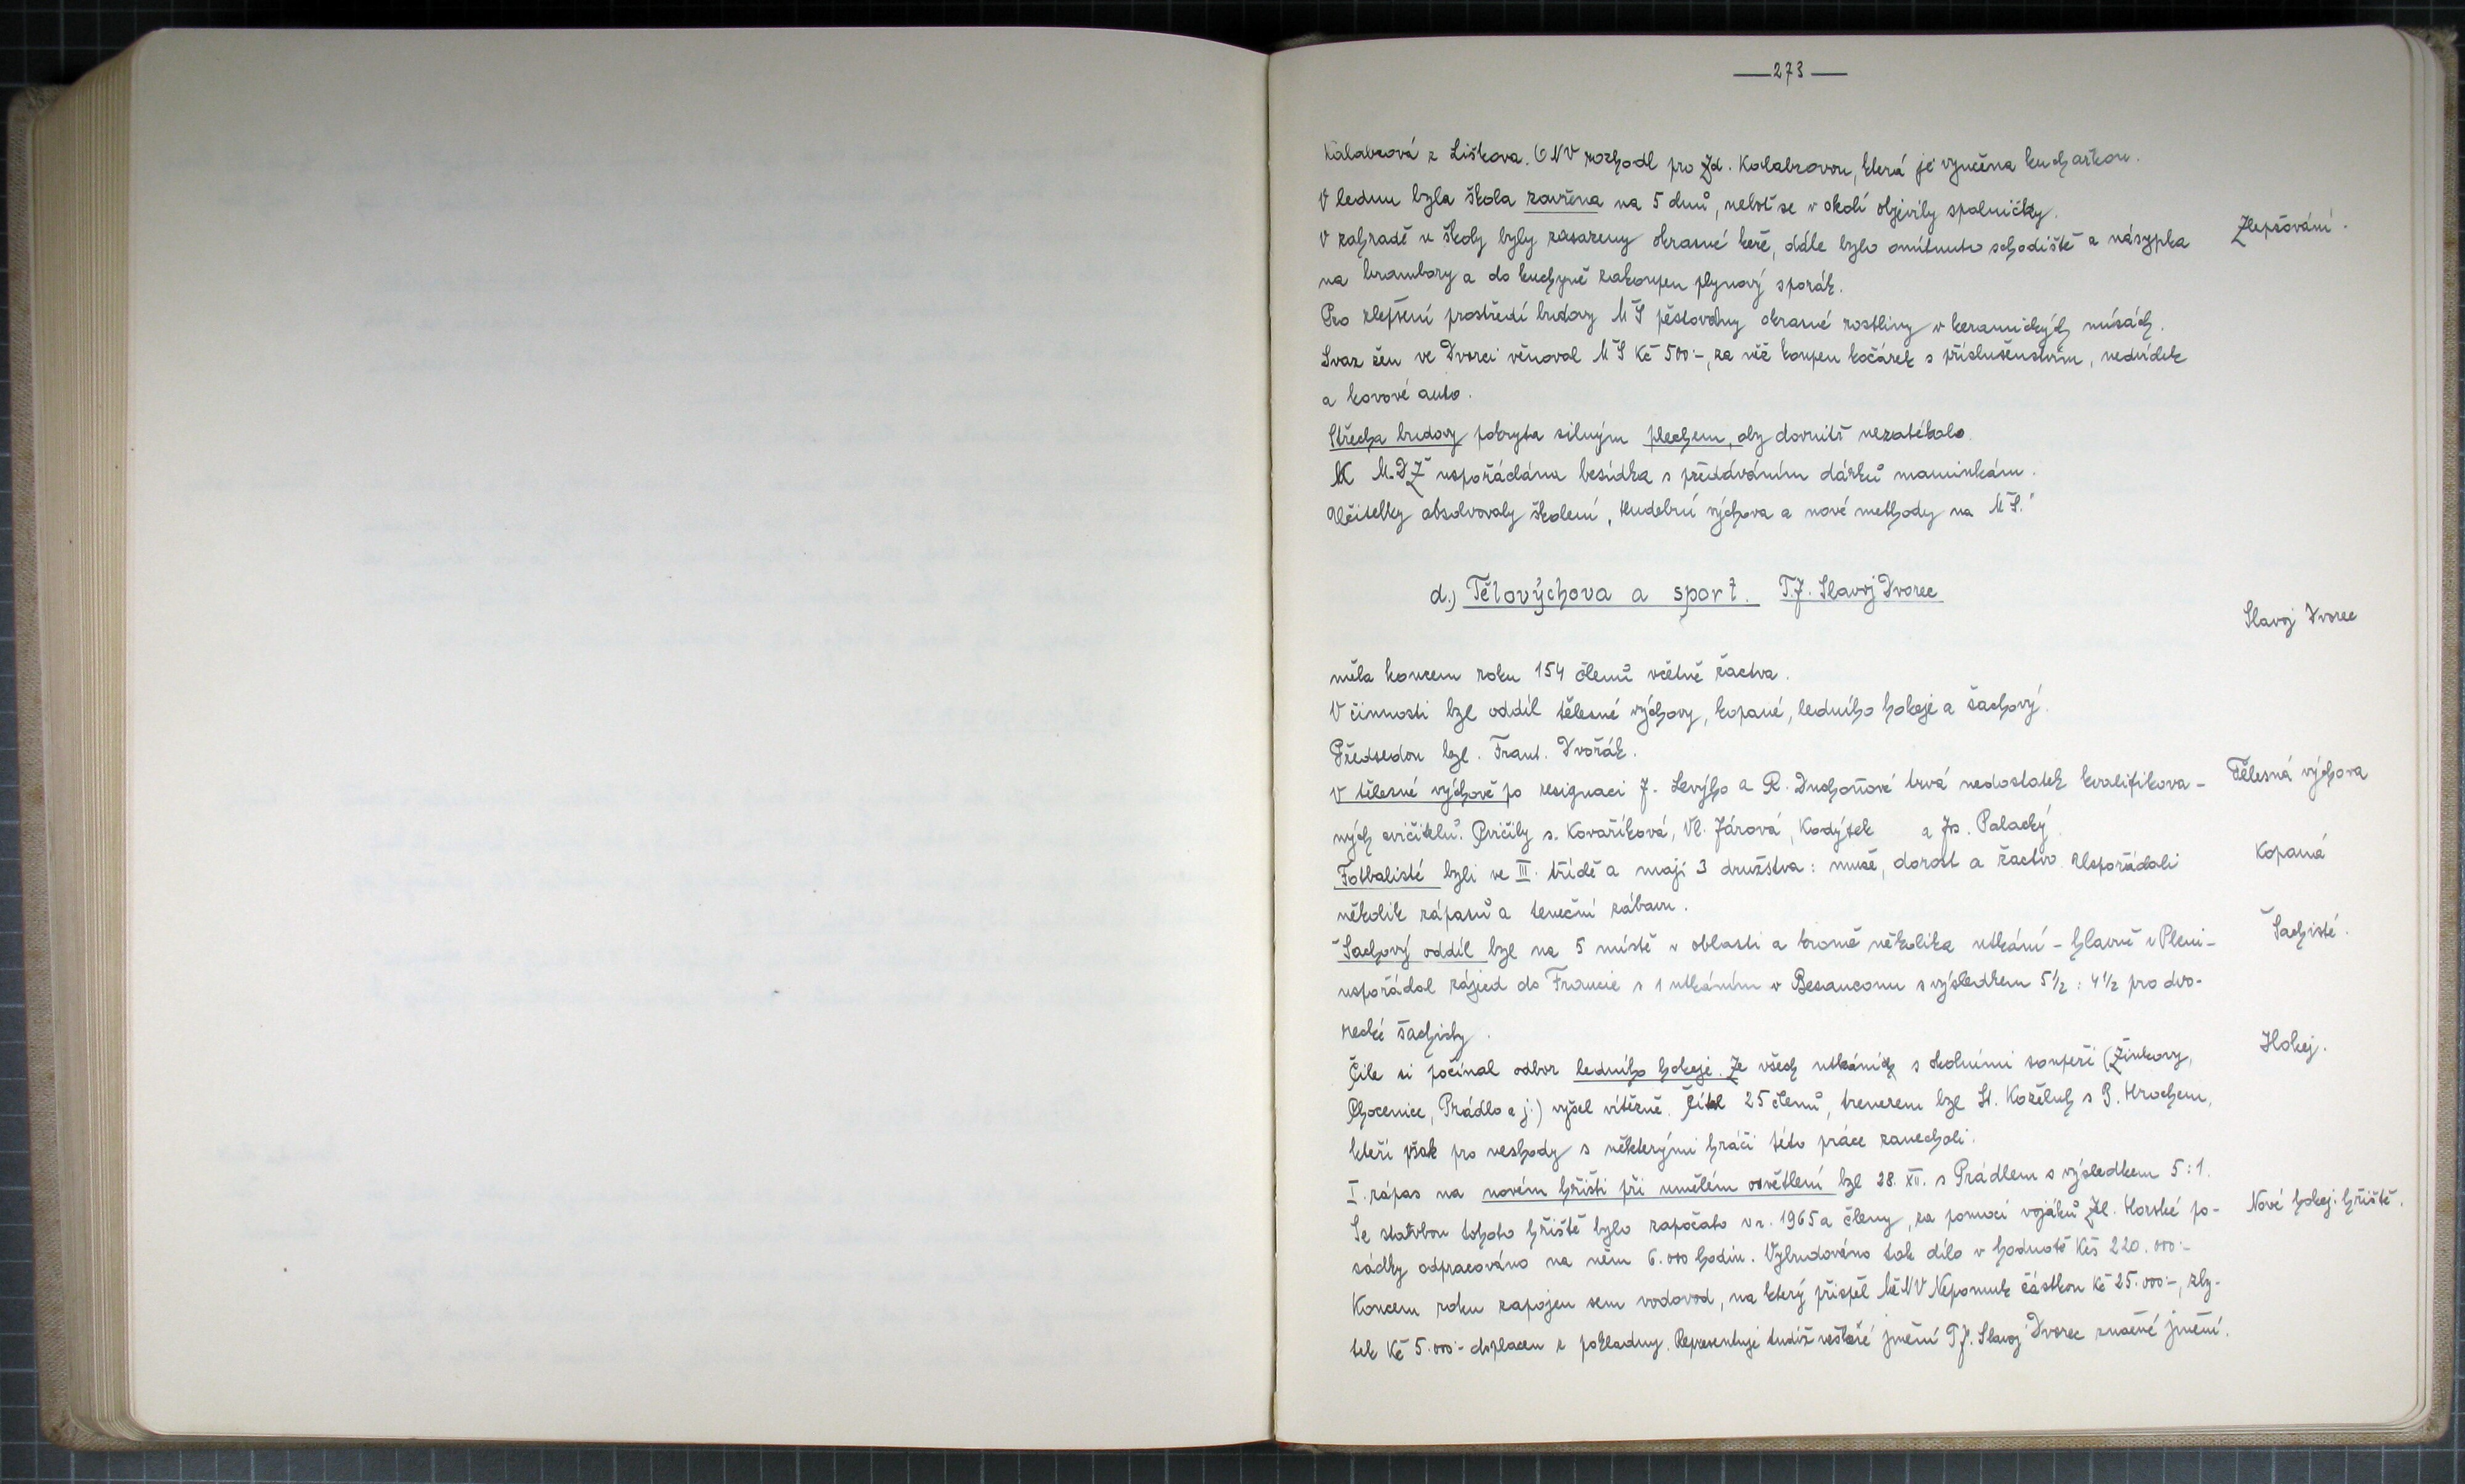 — 273 —
Kalabzová z Liškova. ONV rozhodl pro Zd. Kalabzovou, která je vyučena kuchařkou.
V lednu byla škola zavřena na 5 dnů, neboť se v okolí objevily spalničky.
V zahradě u školy byly zasazeny okrasné keře, dále bylo omítnuto schodiště a násypka
Zlepšování.
na brambory a do kuchyně zakoupen plynový sporák.
Pro zlepšení prostředí budovy MŠ pěstovány okrasné rostliny v keramických mísách.
Svaz žen ve Dvorci věnoval MŠ Kč 500:-, za něž koupen kočárek s příslušenstvím, medvídek
a kovové auto.
Střecha budovy pokryta silným plechem, aby dovnitř nezatékalo.
K M.D.Ž uspořádána besídka s předáváním dárků maminkám.
Učitelky absolvovaly školení, Hudební výchova a nové methody na MŠ."
d.) Tělovýchova a sport. T.J. Slavoj Dvorec
Slavoj Dvorec
měla koncem roku 154 členů včetně žactva.
V činnosti byl oddíl tělesné výchovy, kopané, ledního hokeje a šachový.
Předsedou byl. Frant. Dvořák.
V tělesné výchově po resignaci J. Levýho a R. Duchoňové trvá nedostatek kvalifikova-
Tělesná výchova
ných cvičitelů. Cvičily s. Kovaříková, Vl. Járová, Kodýtek a Js. Palacký.
Fotbalisté byli ve III. třídě a mají 3 družstva: muže, dorost a žactvo. Uspořádali
Kopaná
několik zápasů a taneční zábavu.
Šachový oddíl byl na 5 místě v oblasti a kromě několika utkání - hlavně v Plzni -
Šachisté.
uspořádal zájezd do Francie s 1 utkáním v Besanconu s výsledkem 5½ : 4½ pro dvo-
recké šachisty.
Čile si počínal odbor ledního hokeje. Ze všech utkáních s okolními soupeři (Žinkovy,
Hokej.
Chocenice, Prádlo a j.) vyšel vítězně. Čítal 25 členů, trenerem byl St. Koželuh s P. Hrochem,
kteří však pro neshody s některými hráči této práce zanechali.
I. zápas na novém hřišti při umělém osvětlení byl 28. XII. s Prádlem s výsledkem 5:1.
Se stavbou tohoto hřiště bylo započato v r. 1965 a členy, za pomoci vojáků Zel. Horské po-
Nové hokej. hřiště.
sádky odpracováno na něm 6.000 hodin. Vybudováno tak dílo v hodnotě Kčs 220.000:-
Koncem roku zapojen sem vodovod, na který přispěl MěNV Nepomuk částkou Kč 25.000:-, zby-
tek Kč 5.000:- doplacen z pokladny. Representuje tudíž veškeré jmění T.J. Slavoj Dvorec značné jmění.